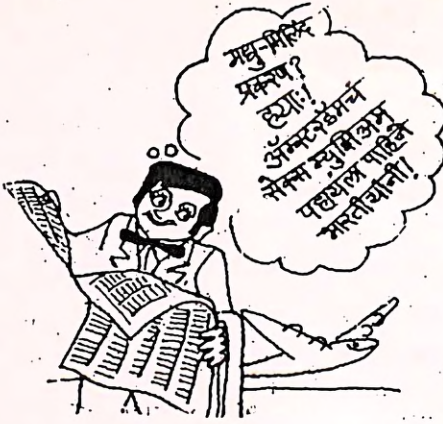 मधु-मिलिंद
प्रकरण?
ह्याः!
ॲमस्टरडॅमचं
सेक्स म्युझिअम
पहायला पाहिजे
भारतीयांनी!